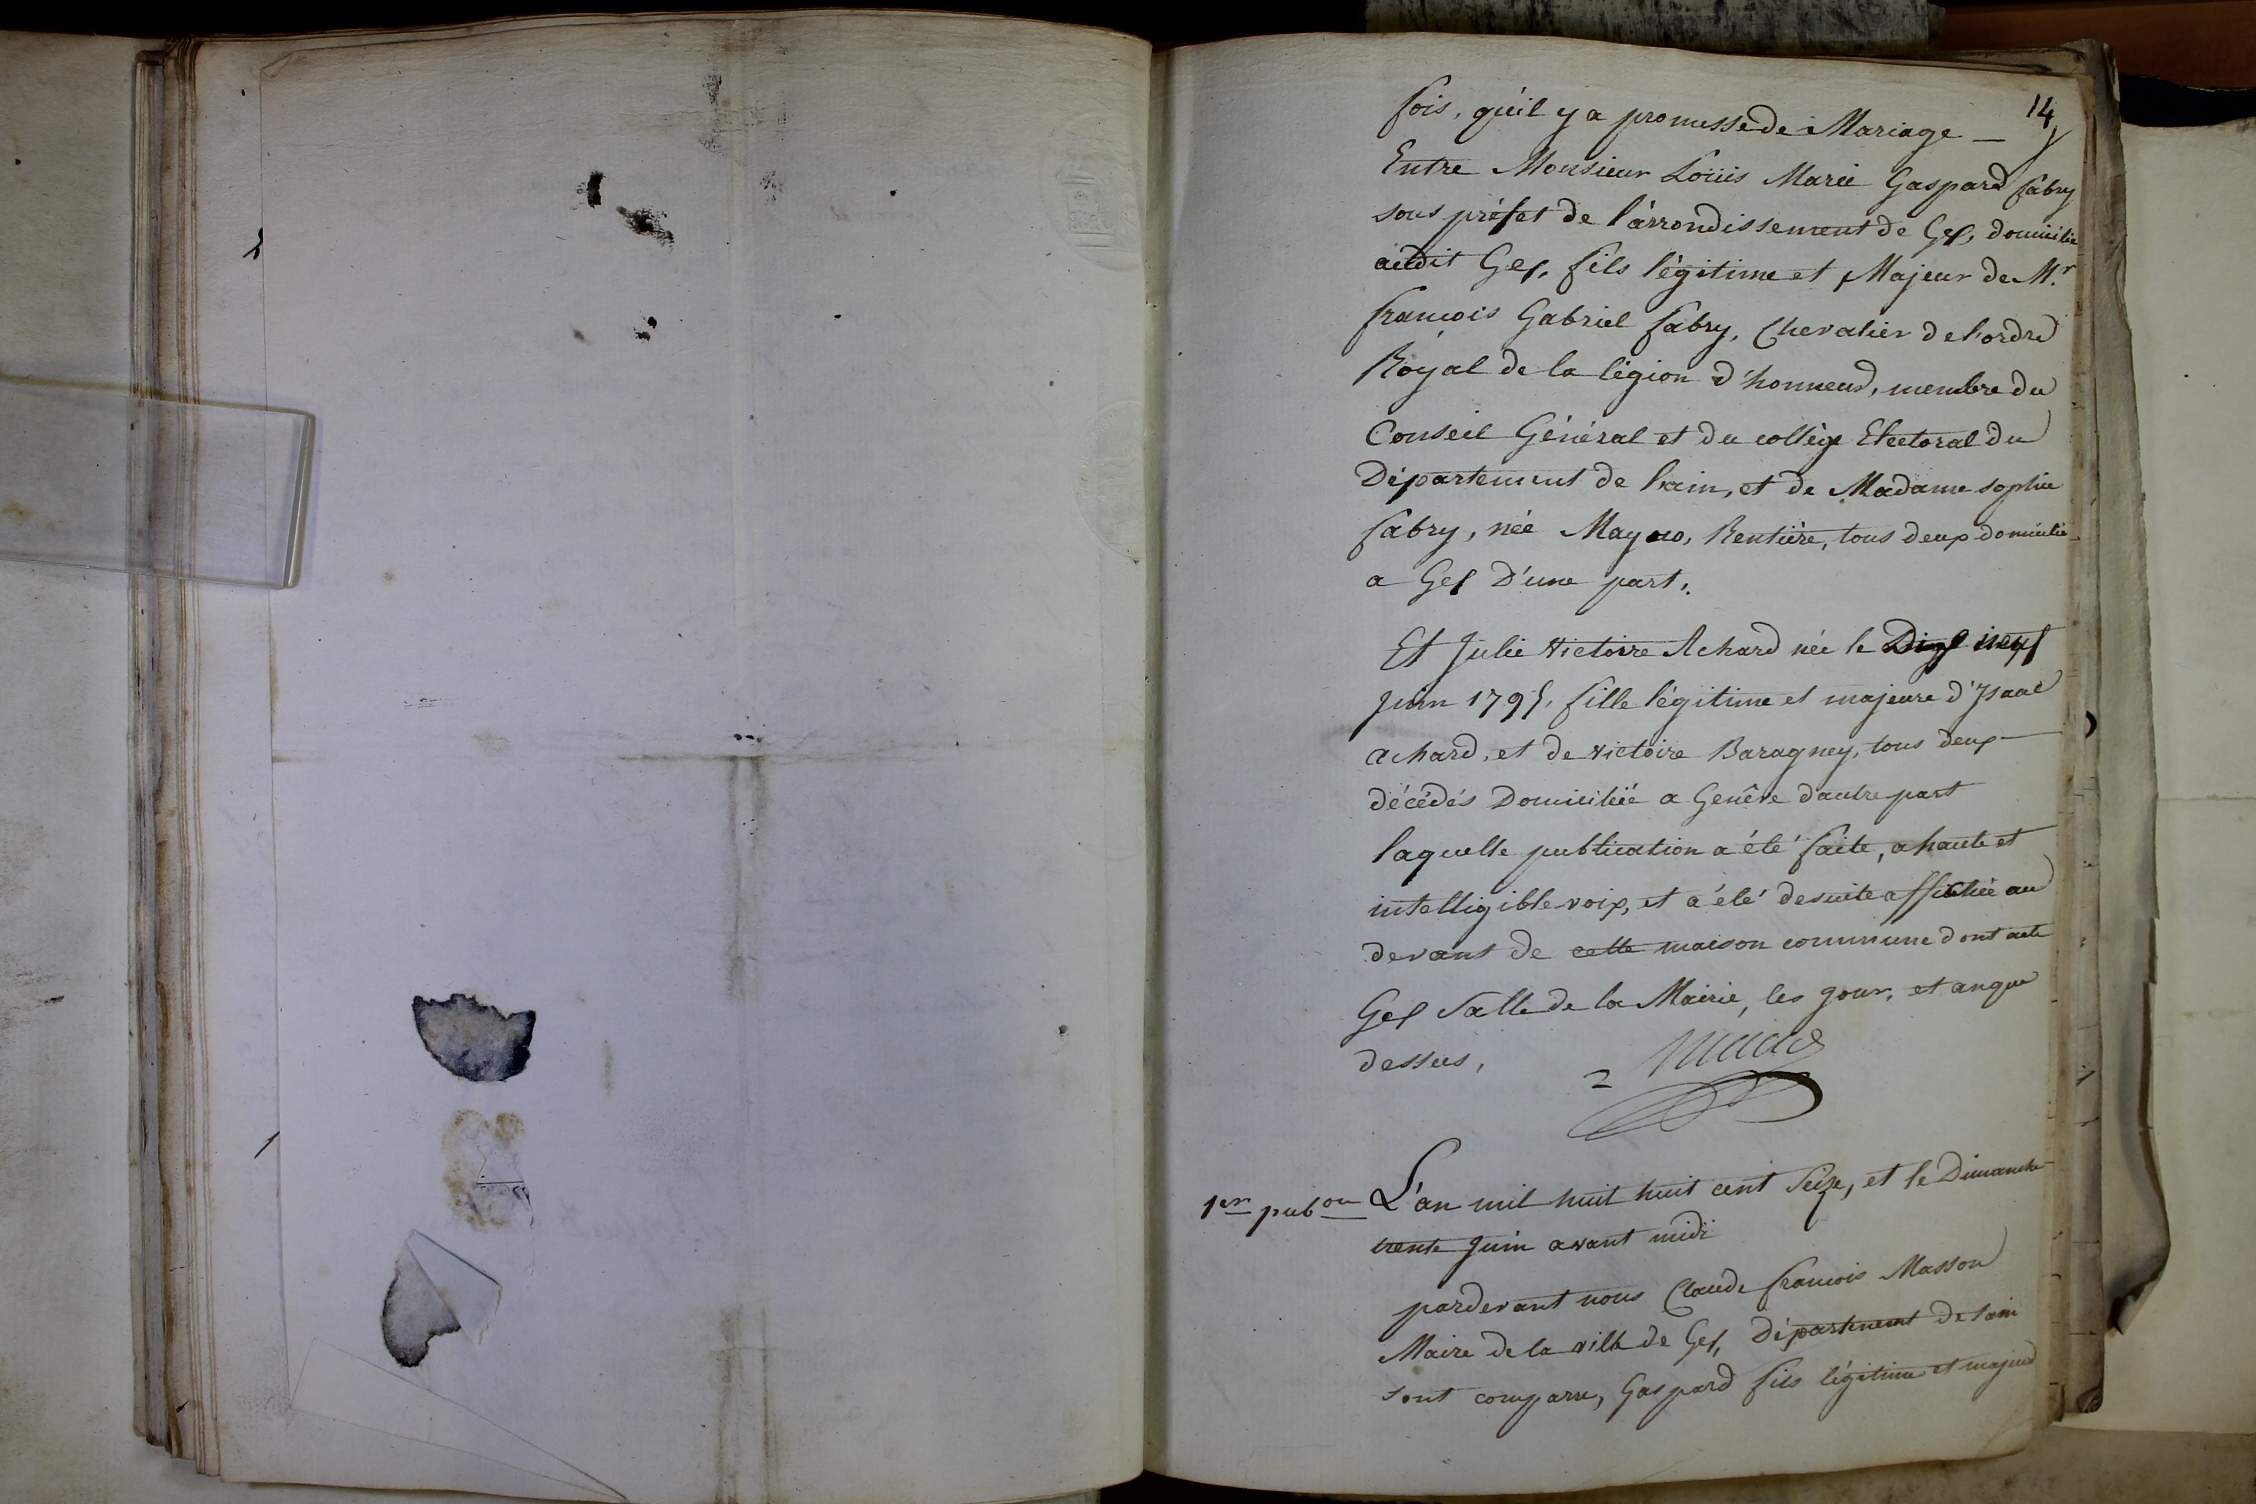 14
fois, qu'il y a promesse de Mariage —
Entre Monsieur Loüis Marie Gaspard fabry
sous préfet de l'arrondissement de Gex, domicilié
audit Gex, fils légitime et Majeur de Mr.
francois Gabriel fabry, Chevalier de l'ordre
Royal de la légion d'honneur, membre du
Conseil Général et du collège Electoral du
Département de l'ain, et de Madame sophie
fabry, née Rentière, tous deux domicilié
a Gex D'une part,
Et Julie Victoire Achard née le Dix neuf
Juin 1795, fille légitime et majeure d'Isaac
achard, et de victoire Baragney, tous deux —
décédés Domiciliée a Genêve d'autre part
laquelle publication a été faite, a haute et
intelligible voix, et a été desuite affichée au
devant de cette maison commune dont acte
Gex Salle de la Mairie, les jour, et an que
dessus,
1er pubon L'an mil huit huit cent Seize, et le Dimanche
trente Juin avant midi
pardevant nous Claude francois Masson
Maire de la ville de Gex, Département de l'ain
sont comparu, Gaspard fils légitime et majeur